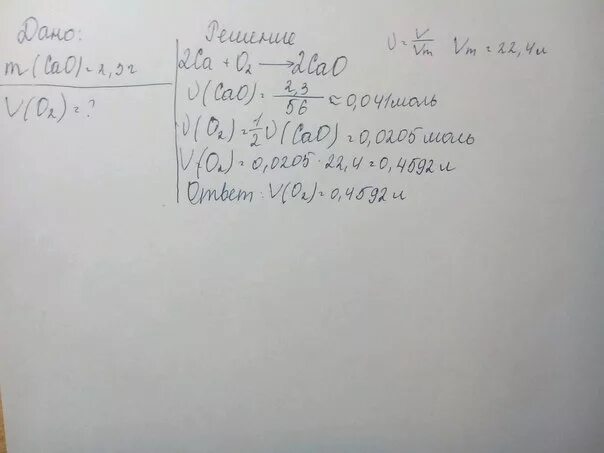 Дано:
m(CaO)=2,3г
V(O₂)=?
Решение
2Ca + O₂ → 2CaO
υ(CaO) = 2,3/56 ≈ 0,041моль
υ(O₂)=1/2υ(CaO)=0,0205моль
V(O₂)=0,0205·22,4=0,4592л
Ответ: V(O₂)=0,4592л
υ=V/Vm Vm=22,4л